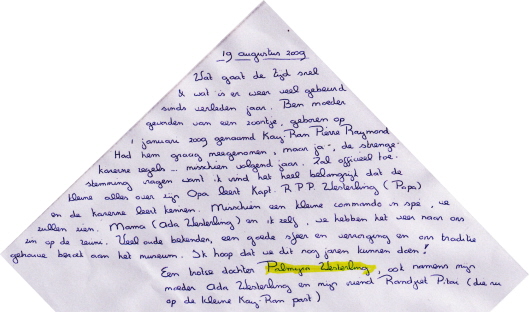 19 augustus 2009
Wat gaat de tijd snel
& wat is er weer veel gebeurd
sinds verleden jaar. Ben moeder
geworden van een zoontje, geboren op
1 januari 2009 genaamd Kay-Ran Pierre Raymond.
Had hem graag meegenomen, maar ja -, de strenge
kazerne regels ... misschien volgend jaar. Zal officieel toe-
stemming vragen want ik vind het heel belangrijk dat de
kleine alles over zijn Opa leert Kapt. R.P.P. Westerling (Papa)
en de kazerne leert kennen. Misschien een kleine commando in spé, we
zullen zien. Mama (Ada Westerling) en ik zelf, we hebben het weer naar ons
zin op de reünie. Veel oude bekenden, een goede sfeer en verzorging en ons traditie
gehouwe bezoek aan het museum. Ik hoop dat we dit nog jaren kunnen doen!
Een trotse dochter Palmyra Westerling, ook namens mijn
moeder Ada Westerling en mijn vriend Randjiet (die nu
op de kleine Kay-Ran past)